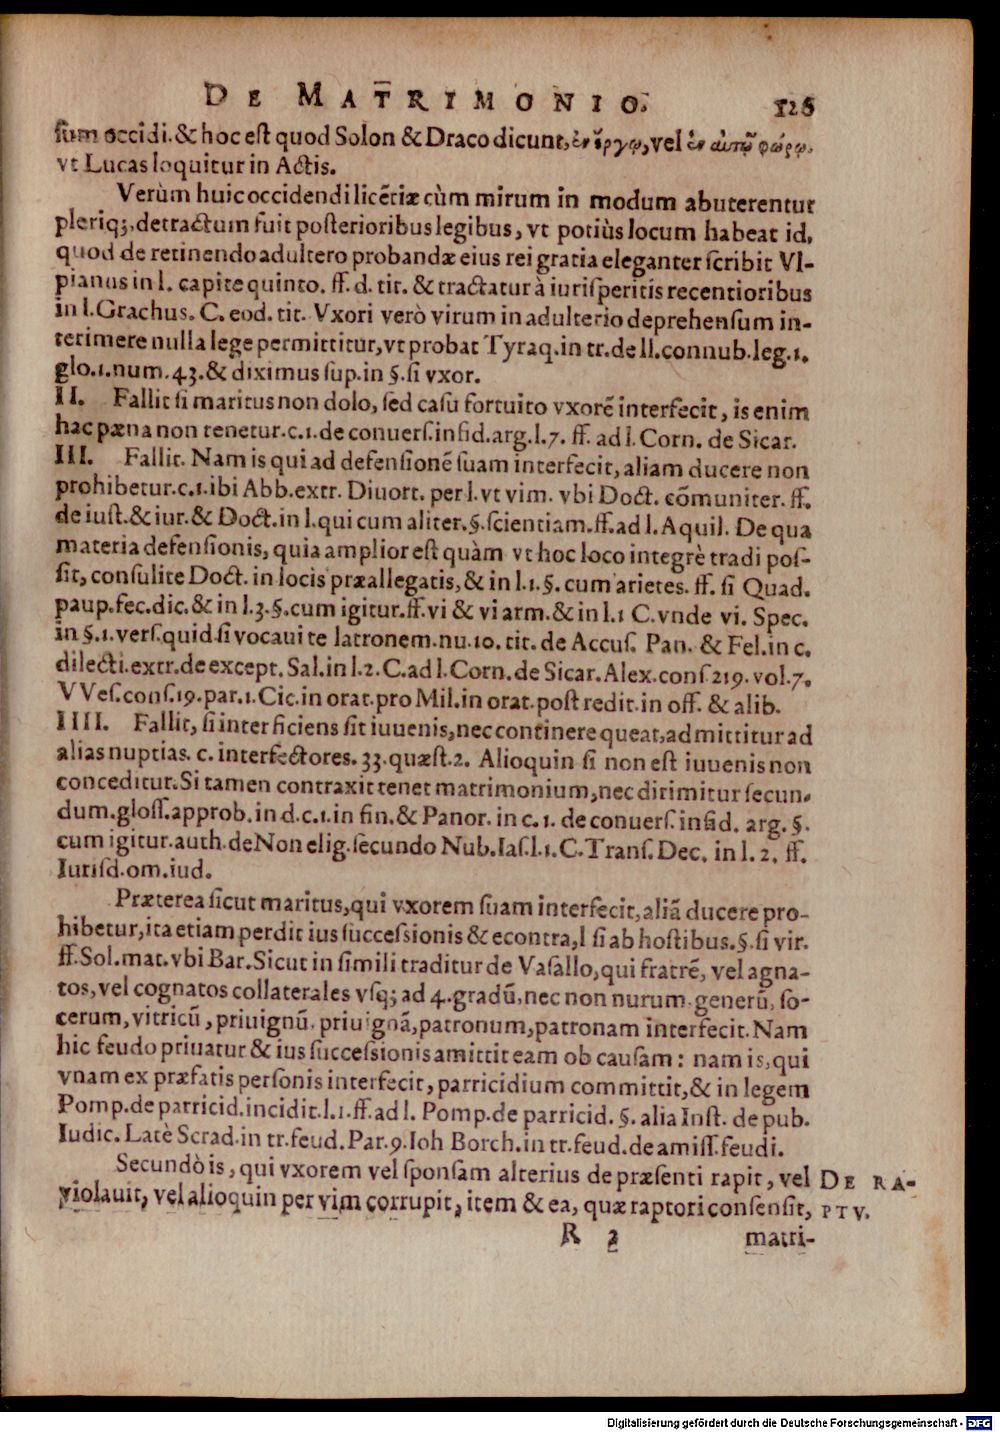 DE MATRIMONIO. 126
ſum occidi. & hoc eſt quod Solon & Draco dicunt, ἐν ἔργῳ, vel ἐν αὐτῷ φώρῳ,
vt Lucas loquitur in Actis.
Verùm huic occidendi licẽtiæ cùm mirum in modum abuterentur
pleriq;, detractum fuit poſterioribus legibus, vt potiùs locum habeat id,
quod de retinendo adultero probandæ eius rei gratia eleganter ſcribit Vl-
pianus in l. capite quinto. ff. d. tit. & tractatur à iuriſperitis recentioribus
in l. Grachus. C. eod. tit. Vxori verò virum in adulterio deprehenſum in-
terimere nulla lege permittitur, vt probat Tyraq. in tr. de ll. connub. leg. 1.
glo. 1. num. 43. & diximus ſup. in §. ſi vxor.
II. Fallit ſi maritus non dolo, ſed caſu fortuito vxorẽ interfecit, is enim
hac pæna non tenetur. c. 1. de conuerſ. infid. arg. l. 7. ff. ad l. Corn. de Sicar.
III. Fallit. Nam is qui ad defenſionẽ ſuam interfecit, aliam ducere non
prohibetur. c. 1. ibi Abb. extr. Diuort. per l. vt vim. vbi Doct. cõmuniter. ff.
de iuſt. & iur. & Doct. in l. qui cum aliter. §. ſcientiam. ff. ad l. Aquil. De qua
materia defenſionis, quia amplior eſt quàm vt hoc loco integrè tradi poſ-
ſit, conſulite Doct. in locis præallegatis, & in l. 1. §. cum arietes. ff. ſi Quad.
paup. fec. dic. & in l. 3. §. cum igitur. ff. vi & vi arm. & in l. 1 C. vnde vi. Spec.
in §. 1. verſ. quid ſi vocaui te latronem. nu. 10. tit. de Accuſ. Pan. & Fel. in c.
dilecti. extr. de except. Sal. in l. 2. C. ad l. Corn. de Sicar. Alex. conſ 219. vol. 7.
VVeſ. conſ. 19. par. 1. Cic. in orat. pro Mil. in orat. poſt redit. in off. & alib.
IIII. Fallit, ſi interficiens ſit iuuenis, nec continere queat, admittitur ad
alias nuptias. c. interfectores. 33. quæſt. 2. Alioquin ſi non eſt iuuenis non
conceditur. Si tamen contraxit tenet matrimonium, nec dirimitur ſecun-
dum. gloſſ. approb. in d. c. 1. in fin. & Panor. in c. 1. de conuerſ. infid. arg. §.
cum igitur. auth. de Non elig. ſecundo Nub. Iaſ. l. 1. C. Tranſ. Dec. in l. 2. ff.
Iuriſd. om. iud.
Præterea ſicut maritus, qui vxorem ſuam interfecit, aliã ducere pro-
hibetur, ita etiam perdit ius ſucceſsionis & econtra, l ſi ab hoſtibus. §. ſi vir.
ff. Sol. mat. vbi Bar. Sicut in ſimili traditur de Vaſallo, qui fratrẽ, vel agna-
tos, vel cognatos collaterales vſq; ad 4. gradũ, nec non nurum. generũ, ſo-
cerum, vitricũ, priuignũ. priuignã, patronum, patronam interfecit. Nam
hic feudo priuatur & ius ſucceſsionis amittit eam ob cauſam: nam is, qui
vnam ex præfatis perſonis interfecit, parricidium committit, & in legem
Pomp. de parricid. incidit. l. 1. ff. ad l. Pomp. de parricid. §. alia Inſt. de pub.
Iudic. Latè Scrad. in tr. feud. Par. 9. Ioh Borch. in tr. feud. de amiſſ. feudi.
Secundò is, qui vxorem vel ſponſam alterius de præſenti rapit, vel
violauit, vel alioquin per vim corrupit, item & ea, quæ raptori conſenſit,
DE RA-
PTV.
R 2 matri-
Digitalisierung gefördert durch die Deutsche Forschungsgemeinschaft - DFG